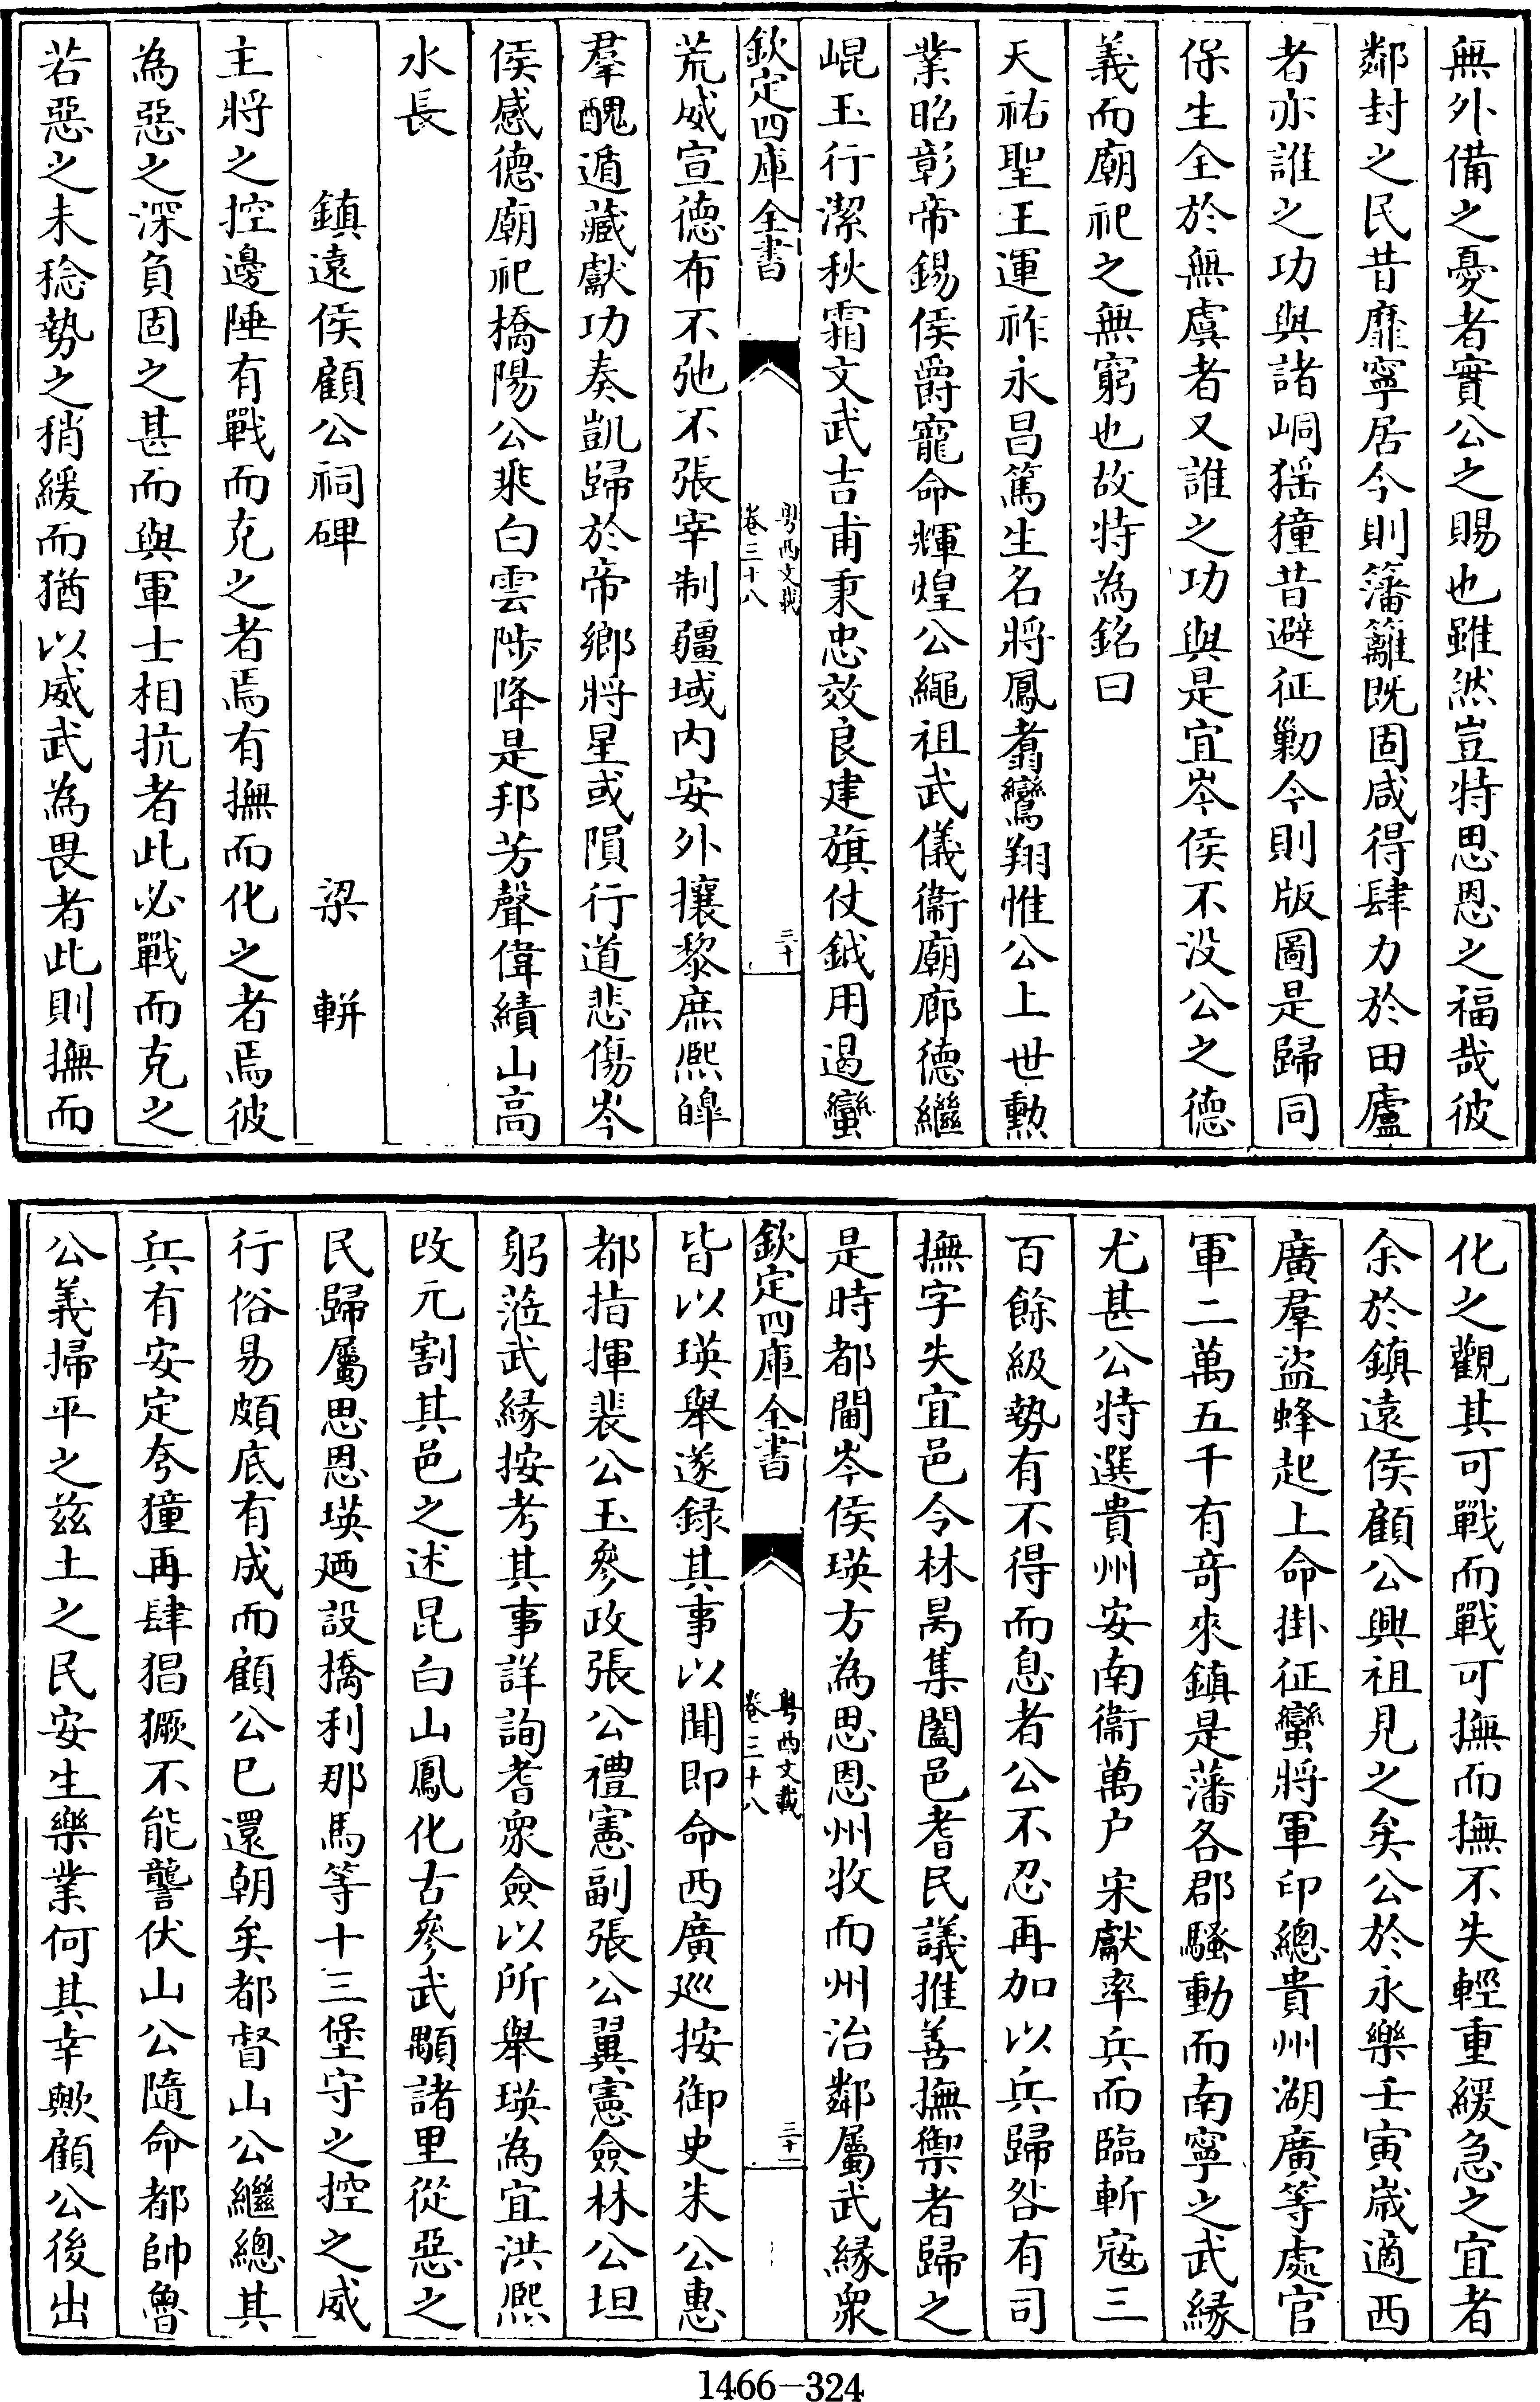 無外備之憂者實公之賜也雖然豈特思恩之福哉彼
鄰封之民昔靡寧居今則籓籬既固咸得肆力於田廬
者亦誰之功與諸峒猺獞昔避征勦今則版圖是歸同
保生全於無虞者又誰之功與是宜岑侯不没公之德
義而廟祀之無窮也故特為銘曰
天祐聖王運祚永昌篤生名將鳳翥鸞翔惟公上世勲
業昭彰帝錫侯爵寵命輝煌公繩祖武儀衛廟廊德繼
崐玉行潔秋霜文武吉甫秉忠效良建旗仗鉞用遏蠻
欽定四庫全書
粤西文載
卷三十八
三十
荒威宣德布不弛不張宰制疆域内安外攘黎庶熙皥
羣醜遁藏獻功奏凱歸於帝鄉將星或隕行道悲傷岑
侯感德廟祀橋陽公乘白雲陟降是邦芳聲偉績山高
水長
鎮遠侯顧公祠碑　梁軿
主將之控邊陲有戰而克之者焉有撫而化之者焉彼
為惡之深負固之甚而與軍士相抗者此必戰而克之
若惡之未稔勢之稍緩而猶以威武為畏者此則撫而
化之觀其可戰而戰可撫而撫不失輕重緩急之宜者
余於鎮遠侯顧公興祖見之矣公於永樂壬寅歲適西
廣羣盜蜂起上命掛征蠻將軍印總貴州湖廣等處官
軍二萬五千有奇來鎮是藩各郡騷動而南寧之武縁
尤甚公特選貴州安南衞萬户宋獻率兵而臨斬寇三
百餘級勢有不得而息者公不忍再加以兵歸咎有司
撫字失宜邑令林昺集闔邑耆民議推善撫禦者歸之
是時都閫岑侯瑛方為思恩州牧而州治鄰屬武縁衆
欽定四庫全書
粤西文載
卷三十八
三十一
皆以瑛舉遂録其事以聞即命西廣廵按御史朱公惠
都指揮裴公玉參政張公禮憲副張公翼憲僉林公坦
躬蒞武縁按考其事詳詢耆衆僉以所舉瑛為宜洪熙
改元割其邑之述昆白山鳳化古參武顒諸里從惡之
民歸屬思恩瑛廼設撟利那馬等十三堡守之控之威
行俗易頗底有成而顧公已還朝矣都督山公繼總其
兵有安定夸獞再肆猖獗不能讋伏山公隨命都帥魯
公義掃平之兹土之民安生樂業何其幸歟顧公後出
1466-324